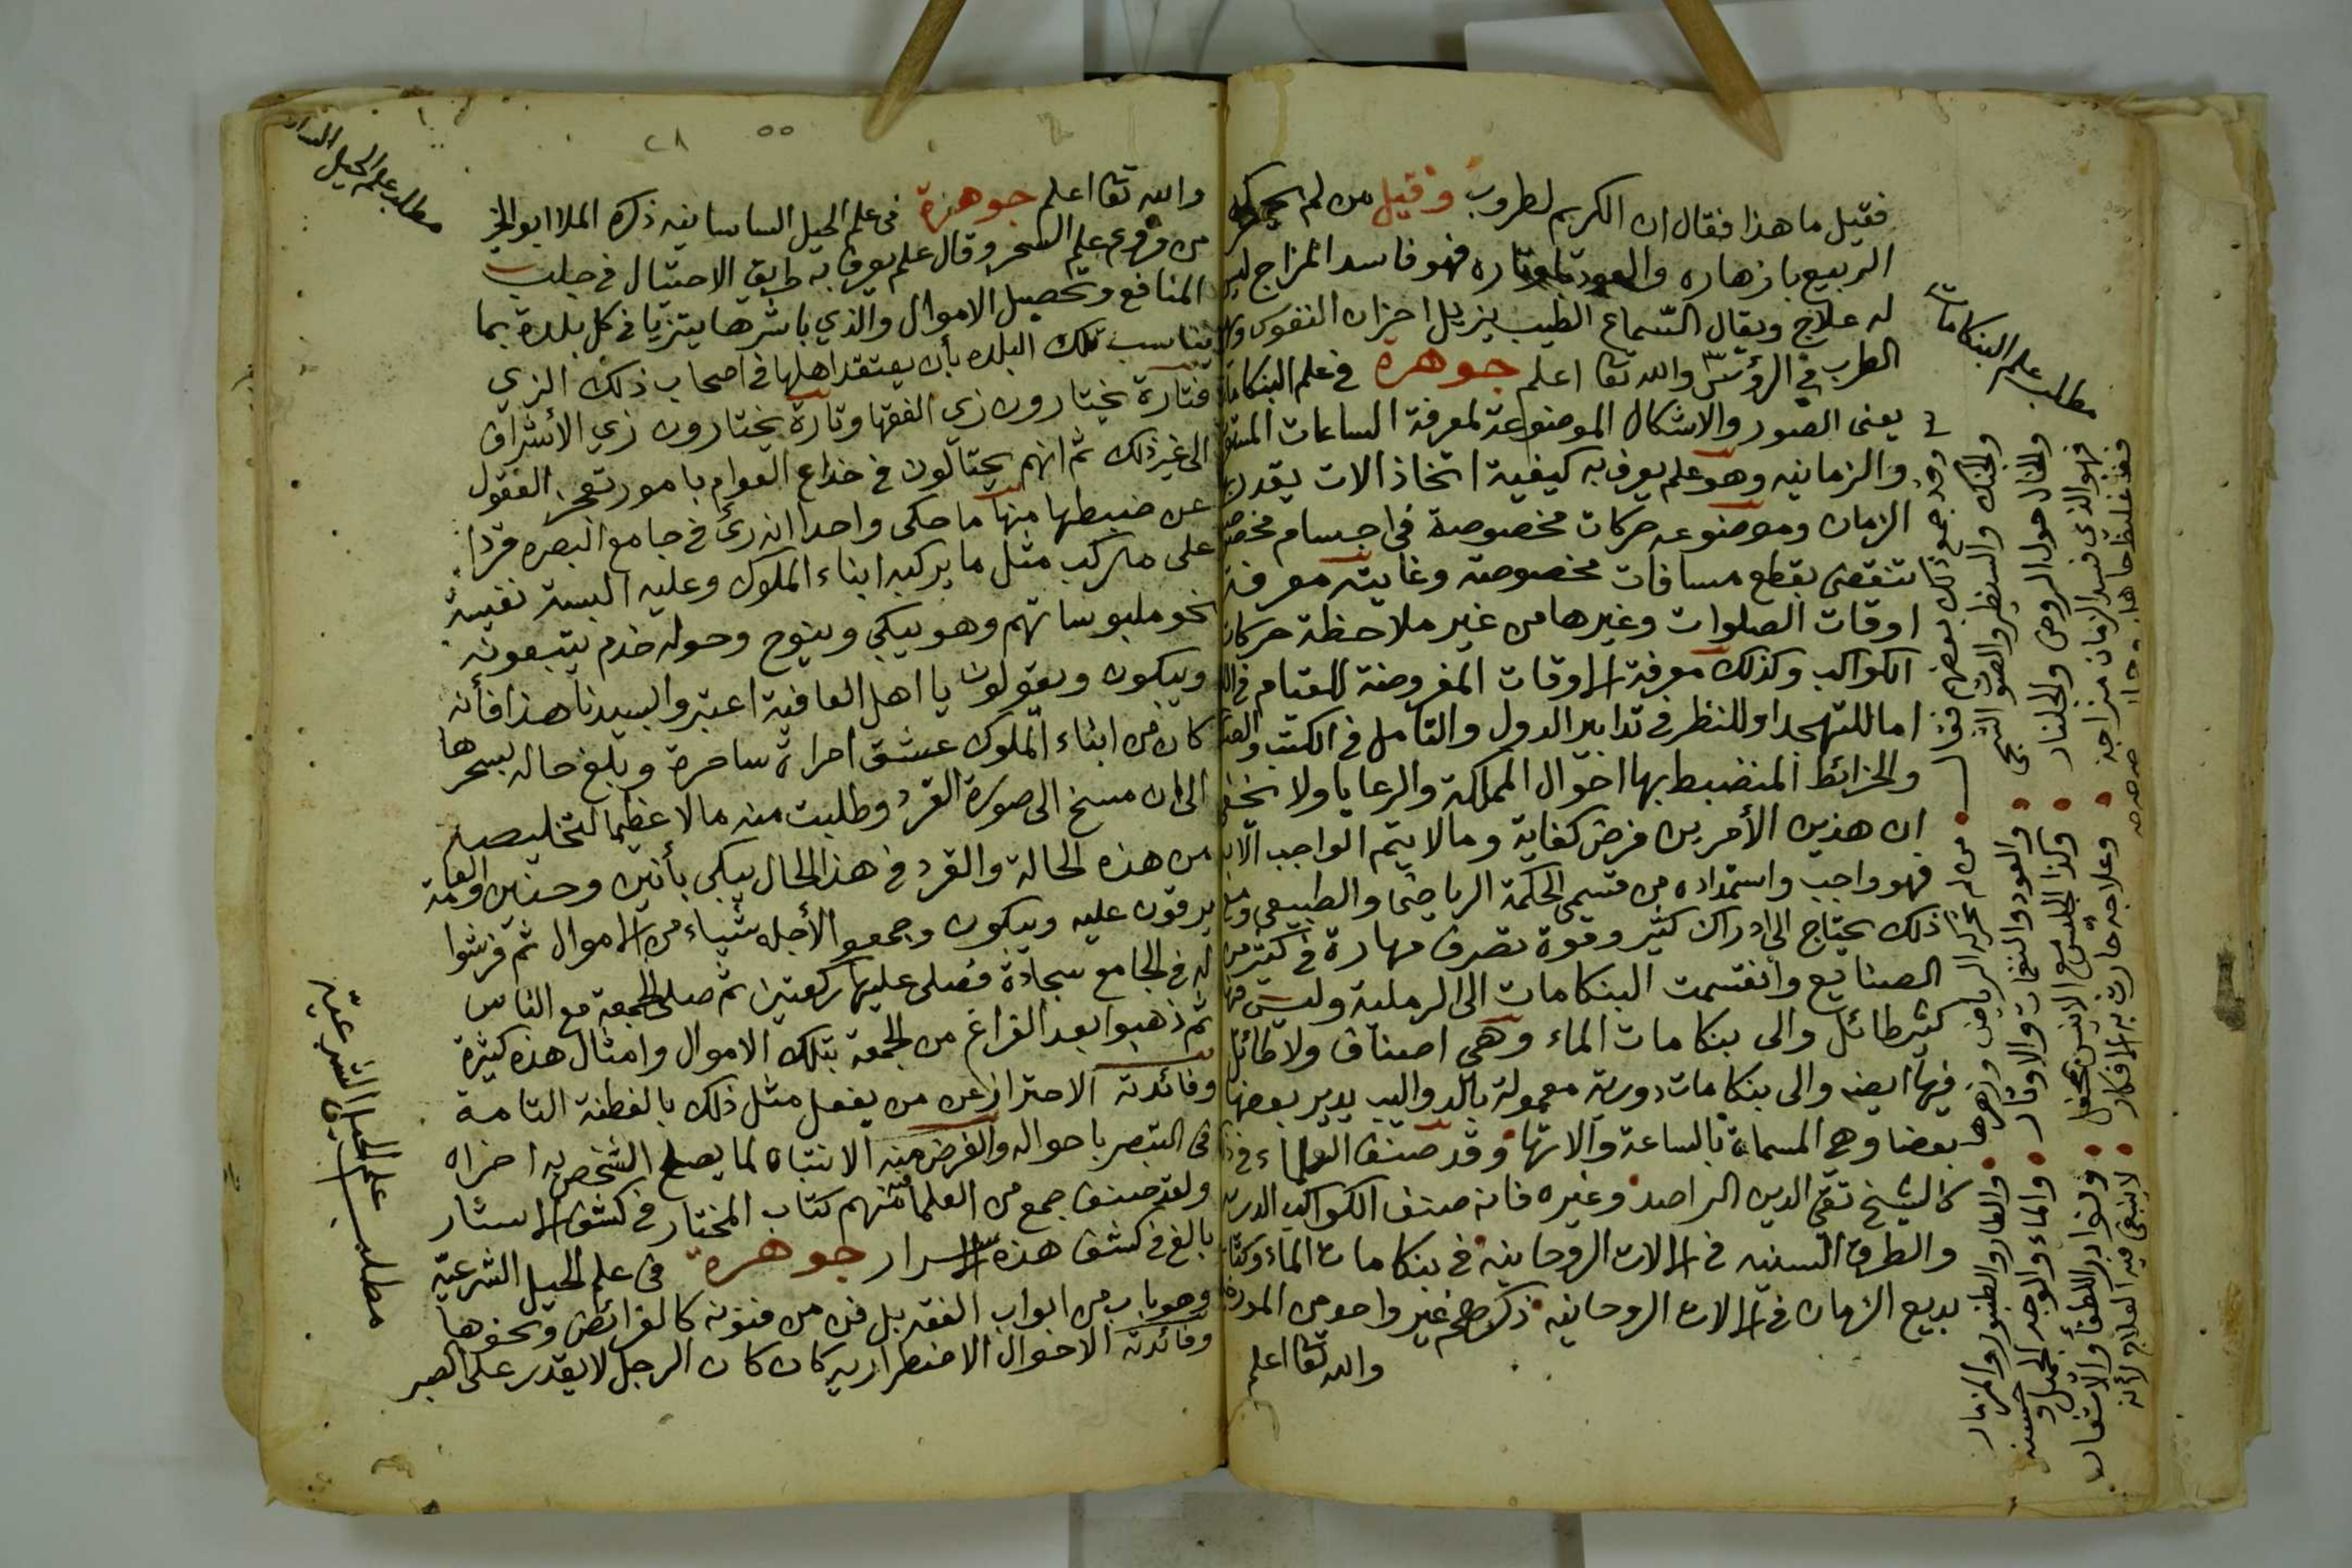 فقيل ما هذا فقال ان الكريم لطروب وقيل من لم يحركه
الربيع بازهاره والعود باوتاره فهو فاسد المزاج ليس
له علاج ويقال السماع الطيب يزيل احزان النفوس
الطرب في الرؤس والله تعا اعلم جوهرة في علم البنكامات
يعنى الصور والاشكال الموضوعة لمعرفة الساعات المستوية
والزمانيه وهو علم يعرف به كيفية اتخاذ الات يقدر بها
الزمان وموضوعه حركات مخصوصة في اجسام مخصوصة
تنقضى بقطع مسافات مخصوصة وغايته معرفة
اوقات الصلوات وغيرها من غير ملاحظة حركات
الكواكب وكذلك معرفة الاوقات المفروضة للقيام في الليل
اما للتهجد او للنظر في تدابير الدول والتأمل في الكتب
والخرائط المنضبط بها احوال المملكة والرعايا ولا يخفى
ان هذين الأمرين فرض كفاية وما لا يتم الواجب الا به
فهو واجب واستمداده من قسمي الحكمة الرياضي والطبيعي ومع
ذلك يحتاج الى ادراك كثير وقوة تصرف مهارة في كثير من
الصنايع وانقسمت البنكامات الى الرملية وليس فيها
كثير طائل والى بنكامات الماء وهي اصناف ولا طائل
فيها ايضا والى بنكامات دورية معمولة بالدواليب يدير بعضها
بعضا وهي المسماة بالساعة والاتها وقد صنف العلماء في ذلك
كالشيخ تقي الدين الراصد وغيره فانه صنف الكواكب الدرية
والطرق السنيه في الالات الروحانيه في بنكامات الماء وكتاب
بديع الزمان في الالات الروحانيه ذكرهم غير واحد من
والله تعا اعلم
مطلب علم البنكامات
من لم يحركه الرياض وازهارها والطار والطنبور والمزمار
والجنك والسنطير والصوت الشجي والعود والنغمات والاوتار والماء والوجه الجميل وحسنه
حول الروض والجلنار وكذا الجليس مع الانيس ونوادر اللطفا والاشعار
فهو الذي فسد الزمان مزاجه وعلاجه حارت به الافكار لا ينبغي فيه العلاج لأنه
والله تعا اعلم جوهرة في علم الحيل الساسانيه ذكره الملا ابو الخير
من فروع علم السحر وقال علم يعرف به طريق الاحتيال في جلب
المنافع وتحصيل الاموال والذي باشرها يتزيا في كل بلدة بما
يناسب تلك البلده بأن يعتقد اهلها في اصحاب ذلك الزي
فتارة يختارون زي الفقها وتارة يختارون زي الأشراف
الى غير ذلك ثم انهم يحتالون في خداع العوام بامور تعجز العقول
عن ضبطها منها ما حكى واحدا انه رئ في جامع البصره قردا
على مركب مثل ما يركبه ابناء الملوك وعليه البسة نفيسة
نحو ملبوساتهم وهو يبكي وينوح وحوله خدم يتبعونه
ويبكون ويقولون يا اهل العافية اعتبروا بسيدنا هذا فأنه
كان من ابناء الملوك عشق امراة ساحرة وبلغ حاله بسحرها
الى ان مسخ الى صورة القرد وطلبت منه مالا عظيما لتخليصه
من هذه الحالة والقرد في هذا الحال يبكي بأنين وحنين والعامة
يرقون عليه ويبكون وجمعوا لأجله شيأ من الاموال ثم فرشوا
له في الجامع سجادة فصلى عليها ركعتين ثم صلى الجمعة مع الناس
ثم ذهبوا بعد الفراغ من الجمعة بتلك الاموال وامثال هذه كثيرة
وفائدته الاحتراز عن من يفعل مثل ذلك بالفطنة التامة
في التبصر باحواله والغرض منه الانتباه لما يصلح الشخص به اخراه
ولقد صنف جمع من العلما منهم كتاب المختار في كشف الاستار
بالغ في كشف هذه الاسرار جوهرة في علم الحيل الشرعية
وهو باب من ابواب الفقه بل فن من فنونه كالفرائض ونحوها
وفائدته الاحوال الاضطراريه كان كان الرجل لا يقدر على الصبر
مطلب علم الحيل
مطلب علم الحيل الشرعيه